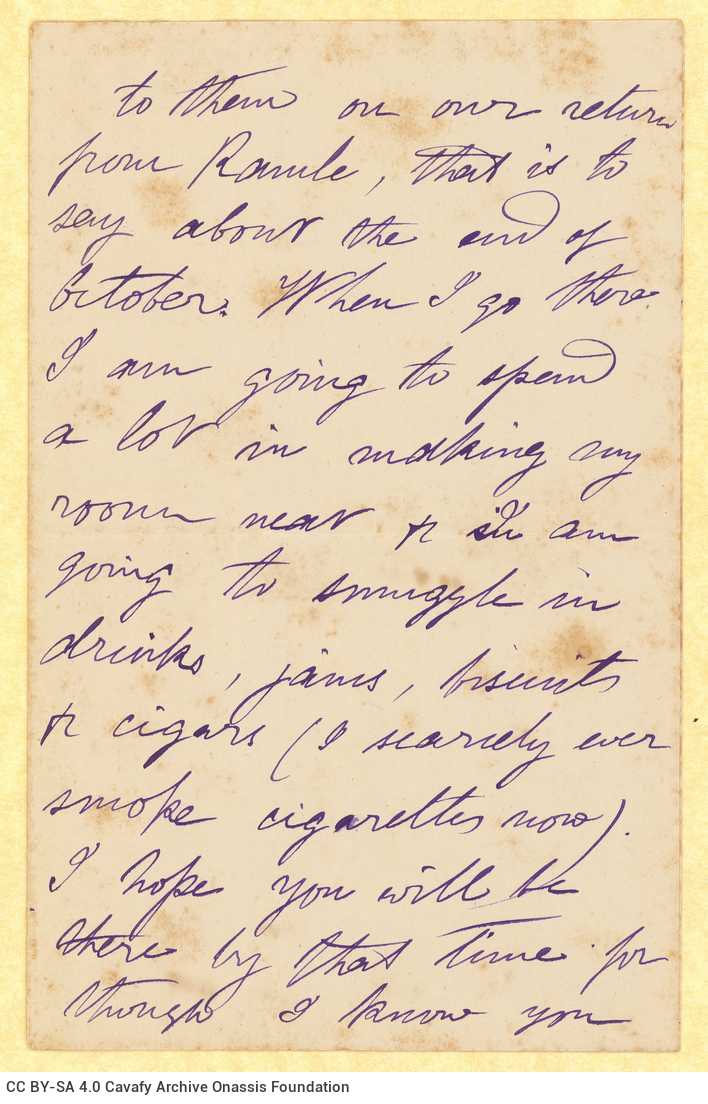 to them on our return
from Ramle, that is to
say about the end of
October. When I go there
I am going to spend
a lot in making my
room neat & I am
going to smuggle in
drinks, jams, biscuits
& cigars (I scarcely ever
smoke cigarettes now).
I hope you will be
there by that time for
though I know you
CC BY-SA 4.0 Cavafy Archive Onassis Foundation